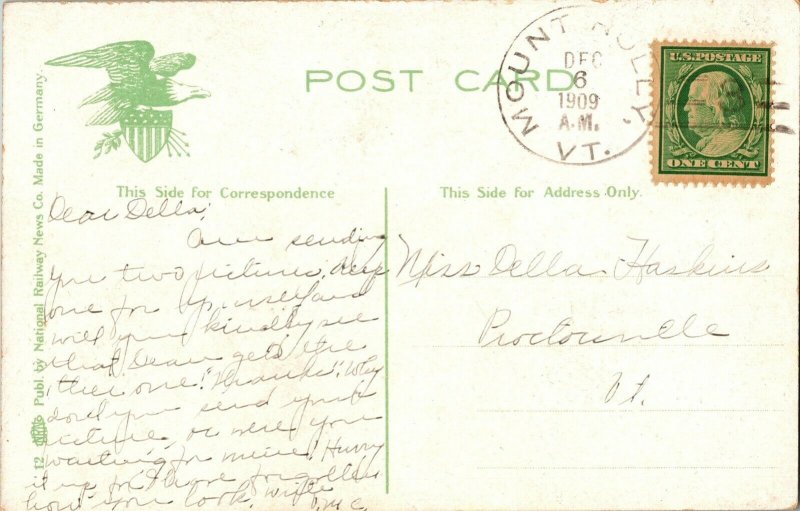 POST CARD
MOUNT HOLLY, VT.
DEC
6
1909
A.M.
U.S. POSTAGE
ONE CENT
12 Publ. by National Railway News Co. Made in Germany.
This Side for Correspondence
Dear Della,
Am sending
you two pictures, keep
one for
will you kindly see
that Dean gets the
other one. "Thanks". Why
don't you send your
picture, or were you
waiting for mine. Hurry
it up for I have forgotten
how you look. Write
This Side for Address Only.
Miss Della Haskins
Proctorsville
Vt.